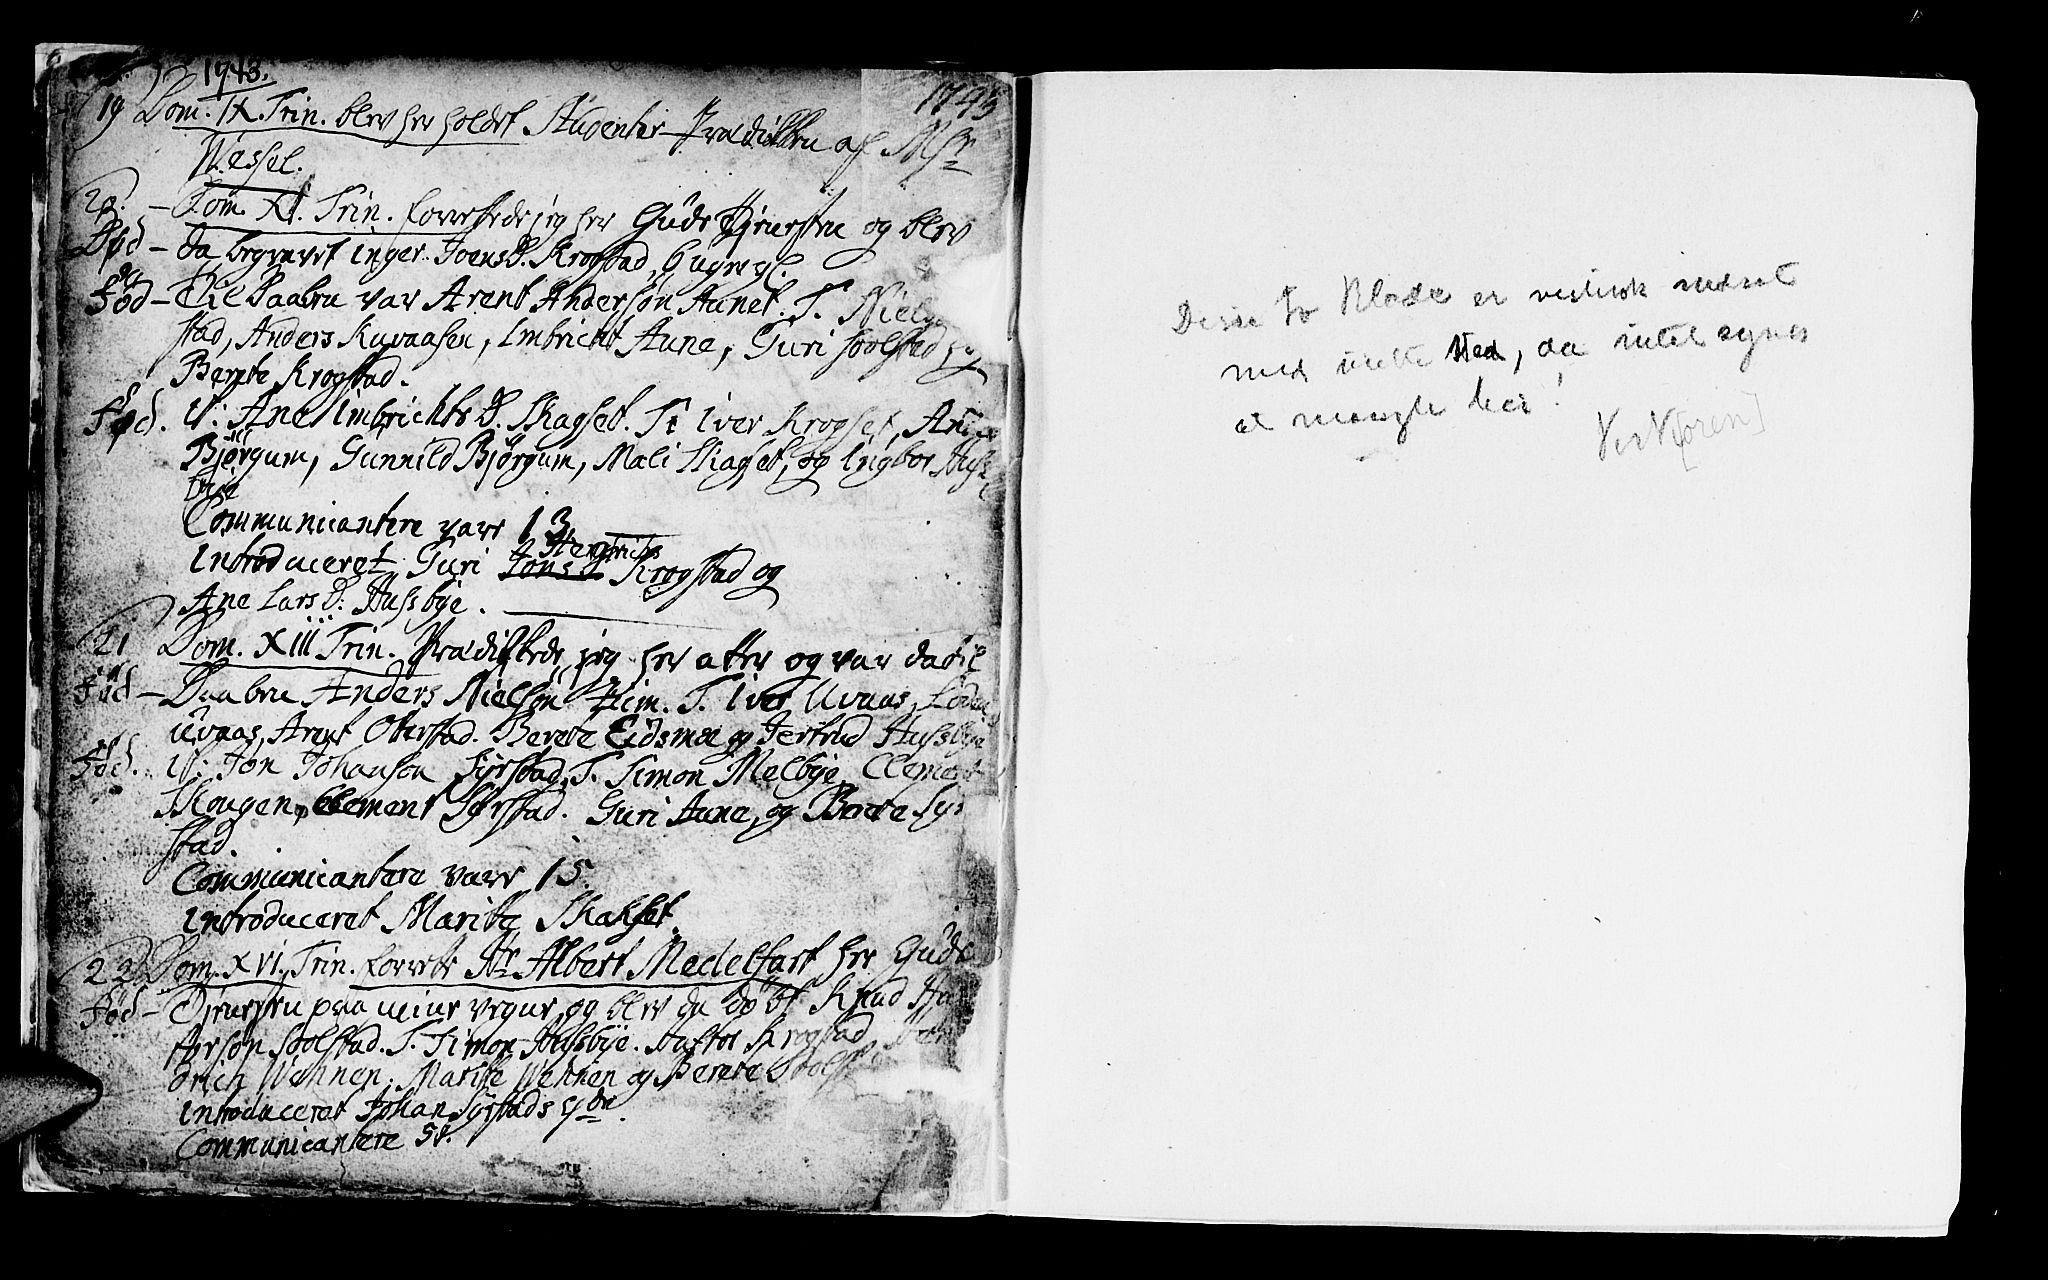 1743.
1743
19 Dom. IX. Trin. blev her holdet Studenter-Prædikken af Msr
Wessel.
20. — Dom. XI. Trin. forrettede jeg her Guds Tjenesten og blev
Død — da begravet Inger Joens D. Krogstad, 6 uger gl.
Fød — Til Daaben var Arent Andersøn Aunet. T. Niels
stad, Anders Kuvaasen, Imbricht Aune, Guri Solstad og
Berete Krogstad.
Fød. it: Ane Imbrichts D. Skagset. T. Iver Krogset,
Bjørgum, Gunnild Bjørgum, Mali Skaget, og Ingbor Huss
bye
Communicantere vare 13
Introduceret Guri Jons D. Krogstad og
Ane Lars D: Hussbye.
21 Dom. XIII Trin. Prædikede jeg her atter og var da til
Fød — Daaben Anders Nielsøn Hiim. T. Iver Uvaas,
Uvaas, Arent Oterstad. Berete Eidsmoe og Jertrud Hussbye
Fød. it: Jon Johansøn Syrstad, T. Simon Melbye, Clement
Skougen, Clement Syrstad. Guri Aune, og Berete Syr
stad.
Communicantere vare 15.
Introduceret Marite Skaset.
22 Dom. XVI. Trin. forrette Hr Albert Medelfart her Guds
Fød — Tjenesten paa mine vegne, og blev da døbt Knud
tersøn Solstad. T. Simon Hussbye. Krogstad
drich Wehnen. Marite Wehnen og Berete Solst
Introduceret Johan Syrstads qde.
Communicantere 58.
Disse to Blade er nedsat
med dette Sted, da intet synes
at mangle her!